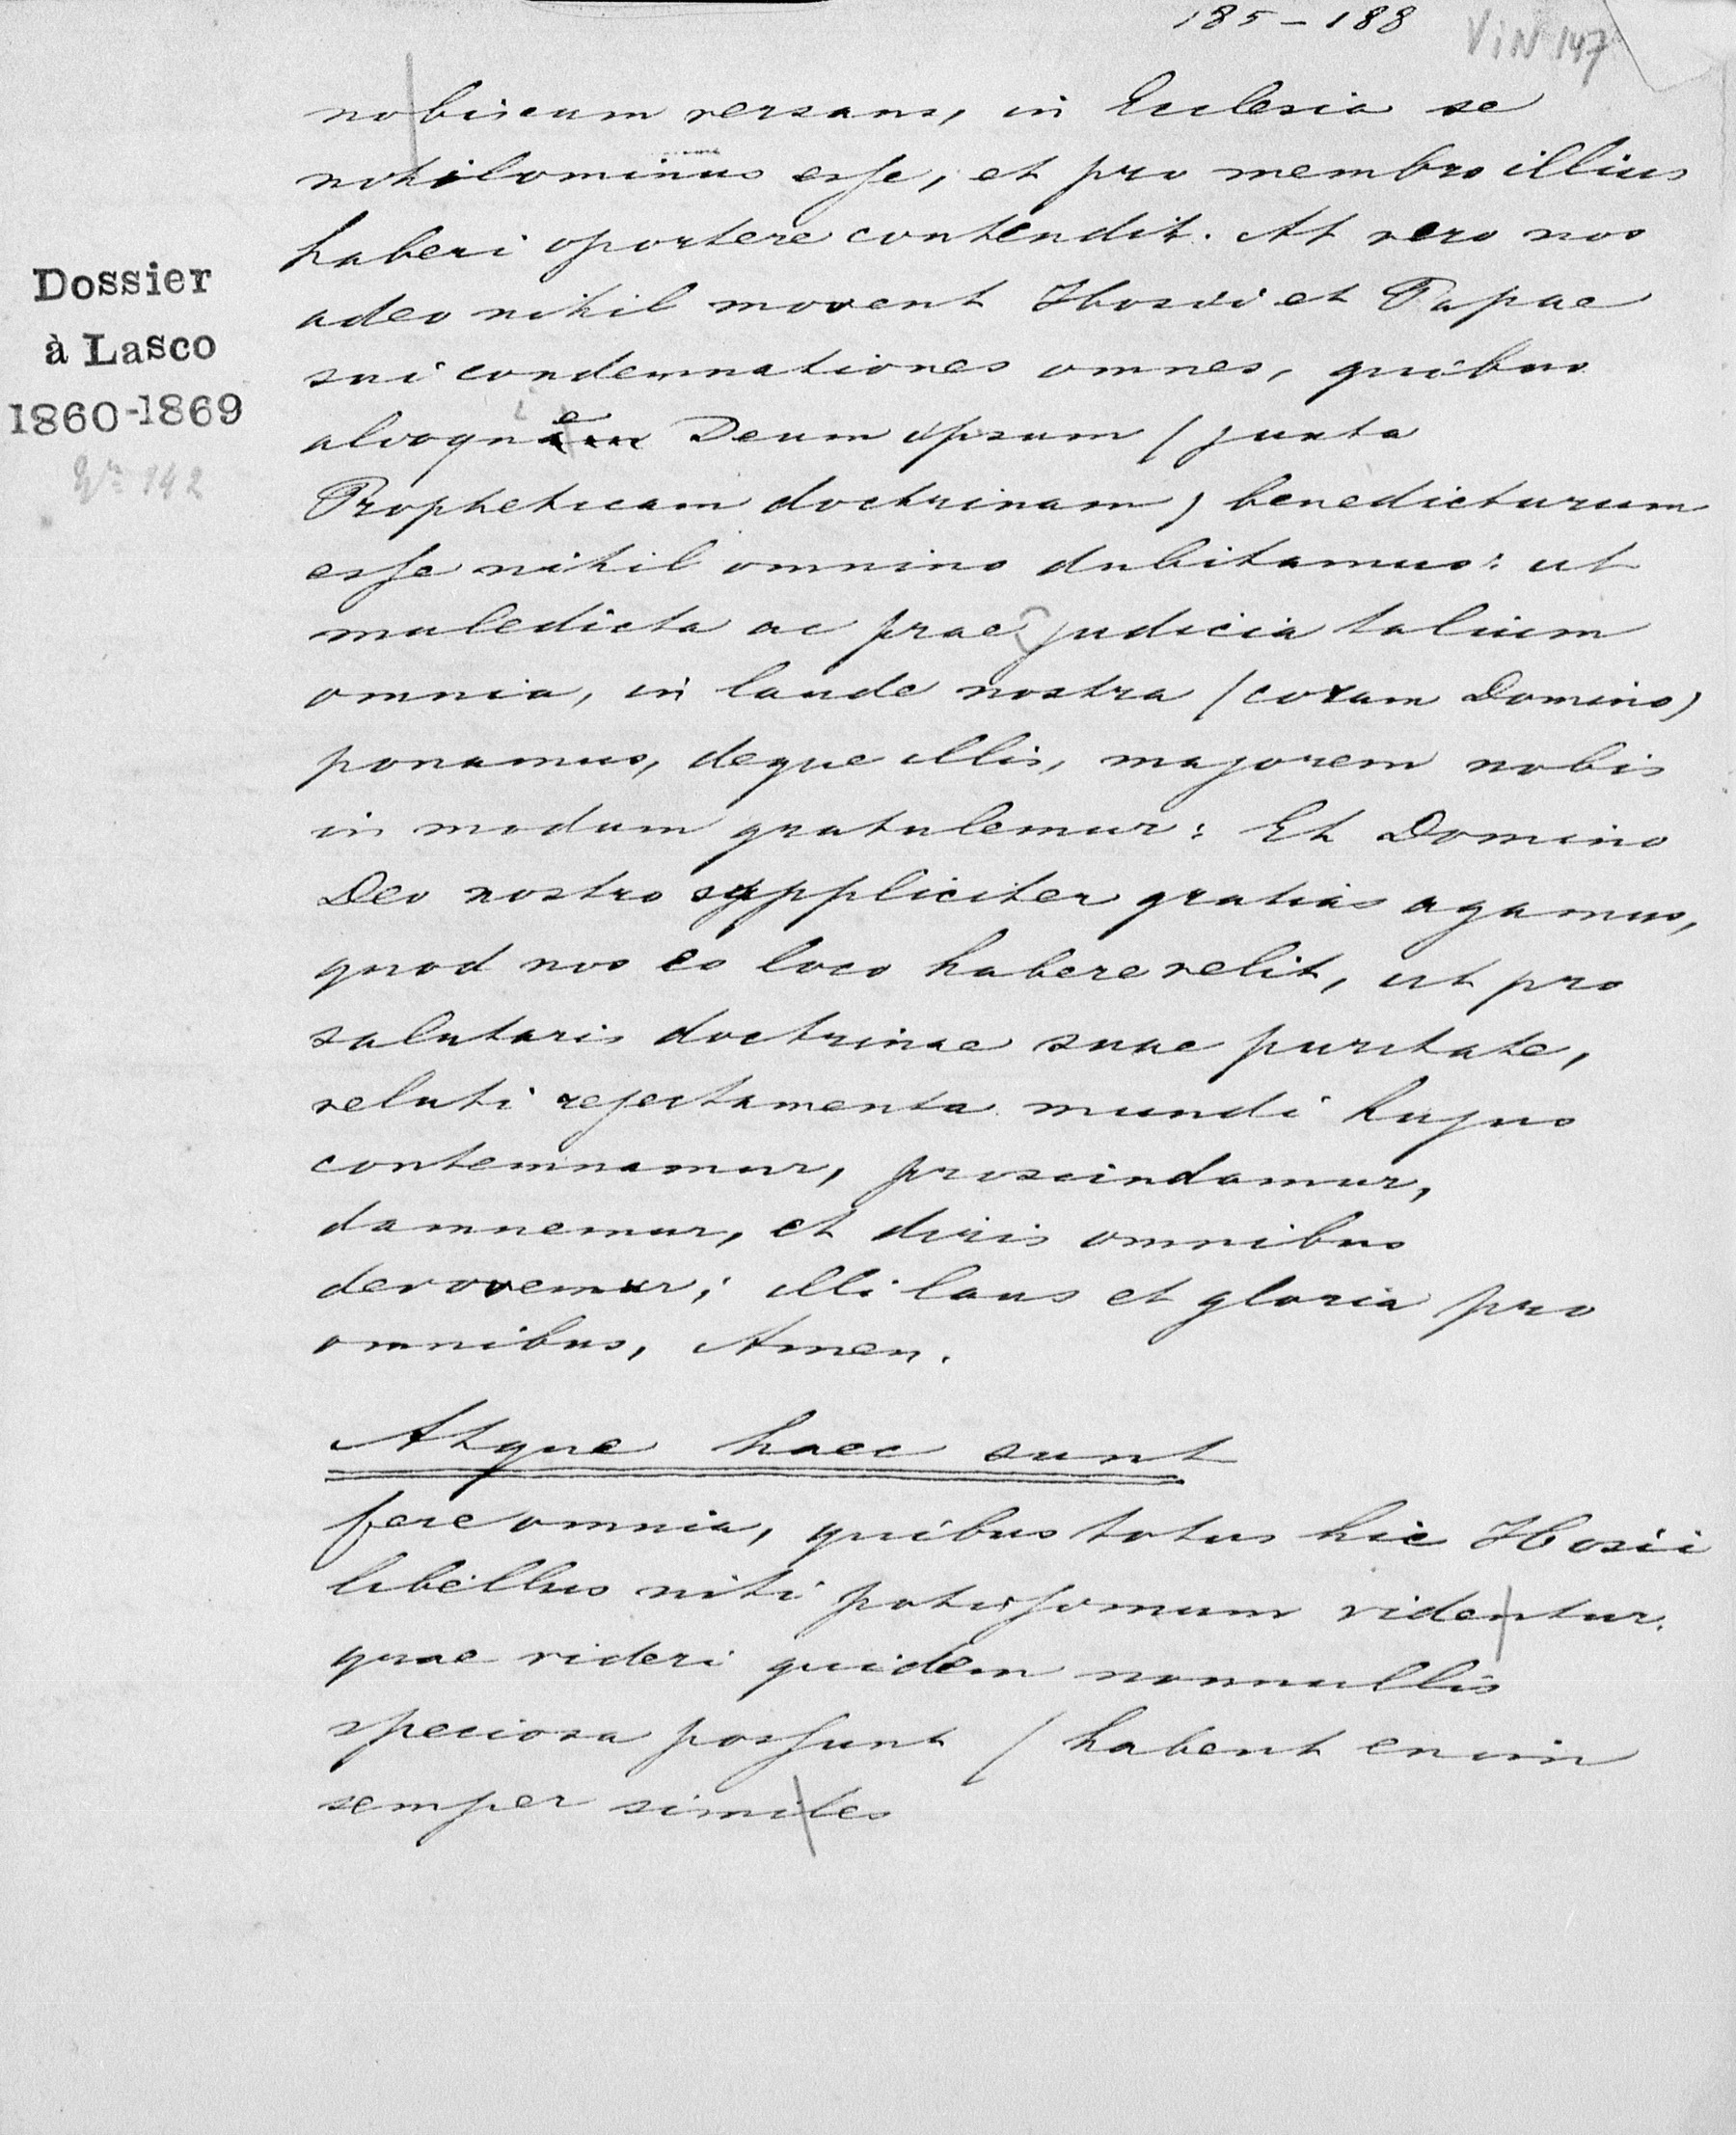 185 - 188
ViN 147
nobiscum versans, in Ecclesia se
nihilominus esse, et pro membro illius
haberi oportere contendit. At vero nos
adeo nihil movent Hosii et Papae
sui condemnationes omnes, quibus
Deum ipsum (juxta
Propheticam doctrinam) benedicturum
esse nihil omnino dubitamus: ut
maledicta ac praejudicia talium
omnia, in laude nostra (coram Domino)
ponamus, deque illis, majorem nobis
in modum gratulemur: Et Domino
Deo nostro suppliciter gratias agamus,
quod nos eo loco habere velit, ut pro
salutaris doctrinae suae puritate,
veluti rejectamenta mundi hujus
contemnamur, proscindamur,
damnemur, et diris omnibus
devovemur; illi laus et gloria pro
omnibus, Amen.
Atque haec sunt
fere omnia, quibus totus hic Hosii
libellus niti potissimum videntur.
quae videri quidem nonnullis
speciosa possunt (habent enim
semper similes
Dossier
à Lasco
1860-1869
142